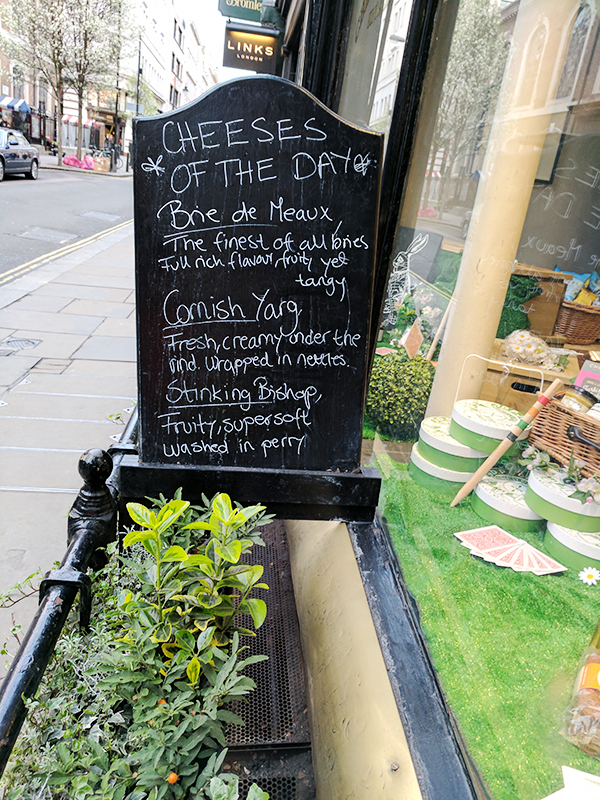 Bromley
LINKS
LONDON
CHEESES
OF THE DAY
Brie de Meaux,
The finest of all bries
Full rich flavour, fruity yet
tangy
Cornish Yarg
Fresh, creamy under the
rind. Wrapped in nettles.
Stinking Bishop,
Fruity, supersoft
washed in perry